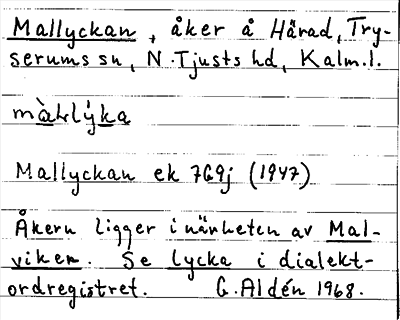 Mallyckan, åker å Härad, Try-
serums sn, N. Tjusts hd, Kalm.l.
Mallyckan ek 7G9j (1947)
Åkern ligger i närheten av Mal-
viken. Se lycka i dialekt-
ordregistret. G. Aldén 1968.